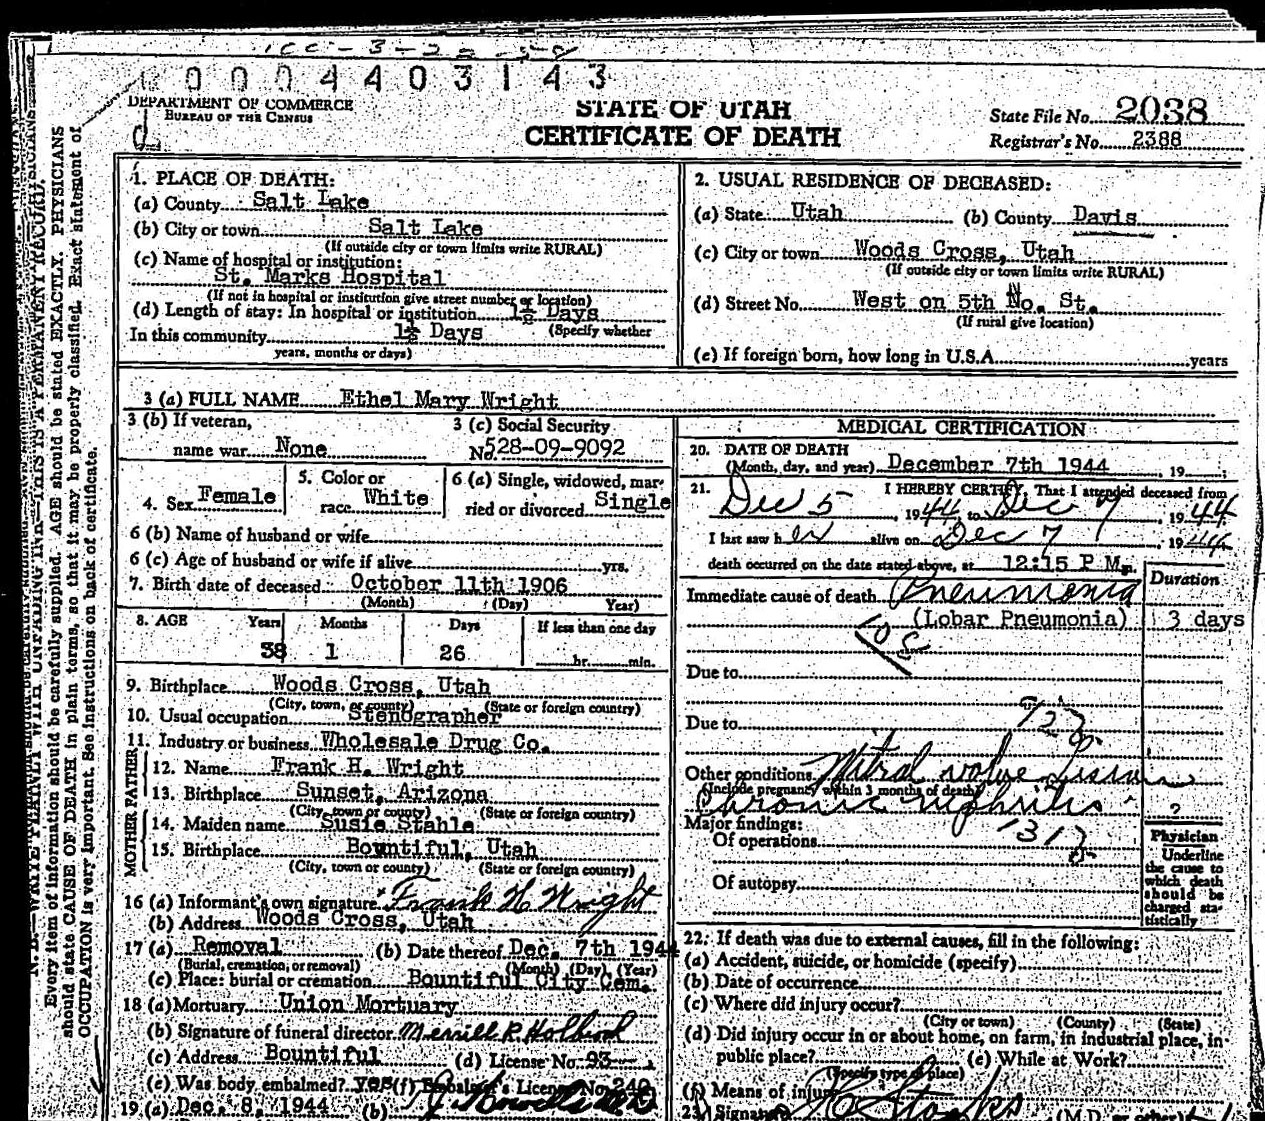 0 0 0 4 4 0 3 1 4 3
DEPARTMENT OF COMMERCE
BUREAU OF THE CENSUS
STATE OF UTAH
CERTIFICATE OF DEATH
State File No. 2038
Registrar's No. 2388
Every item of information should be carefully supplied. AGE should be stated EXACTLY. PHYSICIANS
should state CAUSE OF DEATH in plain terms, so that it may be properly classified. Exact statement of
OCCUPATION is very important. See instructions on back of certificate.
1. PLACE OF DEATH:
(a) County Salt Lake
(b) City or town Salt Lake
(If outside city or town limits write RURAL)
(c) Name of hospital or institution:
St. Marks Hospital
(If not in hospital or institution give street number or location)
(d) Length of stay: In hospital or institution 1½ Days
In this community 1½ Days (Specify whether
years, months or days)
2. USUAL RESIDENCE OF DECEASED:
(a) State Utah (b) County Davis
(c) City or town Woods Cross, Utah
(If outside city or town limits write RURAL)
(d) Street No. West on 5th No. St.
(If rural give location)
(e) If foreign born, how long in U.S.A. years
3 (a) FULL NAME Ethel Mary Wright
3 (b) If veteran,
name war None
3 (c) Social Security
No. 528-09-9092
4. Sex Female
5. Color or
race White
6 (a) Single, widowed, mar-
ried or divorced Single
6 (b) Name of husband or wife
6 (c) Age of husband or wife if alive yrs.
7. Birth date of deceased October 11th 1906
(Month) (Day) Year)
8. AGE Years Months Days If less than one day
38 1 26 hr. min.
9. Birthplace Woods Cross, Utah
(City, town, or county) (State or foreign country)
10. Usual occupation Stenographer
11. Industry or business Wholesale Drug Co.
FATHER
12. Name Frank H. Wright
13. Birthplace Sunset, Arizona
(City, town or county) (State or foreign country)
MOTHER
14. Maiden name Susie Stahle
15. Birthplace Bountiful, Utah
(City, town or county) (State or foreign country)
16 (a) Informant's own signature Frank H Wright
(b) Address Woods Cross, Utah
17 (a) Removal (b) Date thereof Dec. 7th 1944
(Burial, cremation, or removal) (Month) (Day) (Year)
(c) Place: burial or cremation Bountiful City Cem.
18 (a) Mortuary Union Mortuary
(b) Signature of funeral director Merrill R Holbrook
(c) Address Bountiful (d) License No. 93
(e) Was body embalmed? Yes (f) Embalmer's License No. 240
19 (a) Dec. 8, 1944 (b)
MEDICAL CERTIFICATION
20. DATE OF DEATH
(Month, day, and year) December 7th 1944 , 19 ;
21. I HEREBY CERTIFY, That I attended deceased from
Dec 5 , 1944 to Dec 7 , 1944
I last saw her alive on Dec 7 , 1944
death occurred on the date stated above, at 12:15 P M.
Duration
Immediate cause of death Pneumonia
(Lobar Pneumonia) 3 days
108
Due to
Due to
Other conditions Mitral valve
(Include pregnancy within 3 months of death)
Chronic nephritis ?
Major findings:
Of operations
Of autopsy
Physician
Underline
the cause to
which death
should be
charged sta-
tistically
22. If death was due to external causes, fill in the following:
(a) Accident, suicide, or homicide (specify)
(b) Date of occurrence
(c) Where did injury occur?
(City or town) (County) (State)
(d) Did injury occur in or about home, on farm, in industrial place, in
public place? (e) While at Work?
(Specify type of place)
(f) Means of injury
23. Signature (M.D. or other)